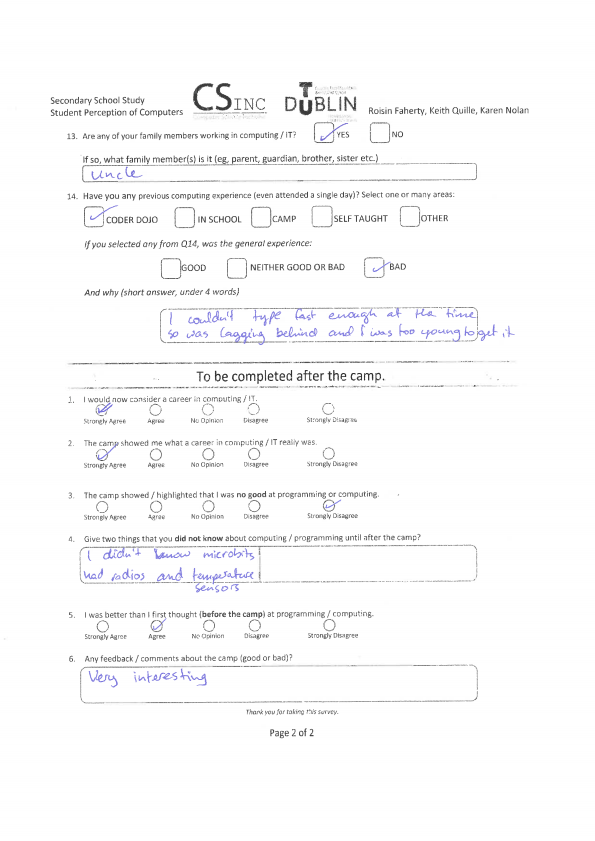 Secondary School Study
Student Perception of Computers
CSINC
DUBLIN
Roisin Faherty, Keith Quille, Karen Nolan
13. Are any of your family members working in computing / IT? YES NO
If so, what family member(s) is it (eg, parent, guardian, brother, sister etc.)
Uncle
14. Have you any previous computing experience (even attended a single day)? Select one or many areas:
CODER DOJO IN SCHOOL CAMP SELF TAUGHT OTHER
If you selected any from Q14, was the general experience:
GOOD NEITHER GOOD OR BAD BAD
And why (short answer, under 4 words)
I couldn't type fast enough at the time
so was lagging behind and I was too young to get it
To be completed after the camp.
1. I would now consider a career in computing / IT.
Strongly Agree Agree No Opinion Disagree Strongly Disagree
2. The camp showed me what a career in computing / IT really was.
Strongly Agree Agree No Opinion Disagree Strongly Disagree
3. The camp showed / highlighted that I was no good at programming or computing.
Strongly Agree Agree No Opinion Disagree Strongly Disagree
4. Give two things that you did not know about computing / programming until after the camp?
I didn't know microbits
had radios and temperature
sensors
5. I was better than I first thought (before the camp) at programming / computing.
Strongly Agree Agree No Opinion Disagree Strongly Disagree
6. Any feedback / comments about the camp (good or bad)?
Very interesting
Thank you for taking this survey.
Page 2 of 2